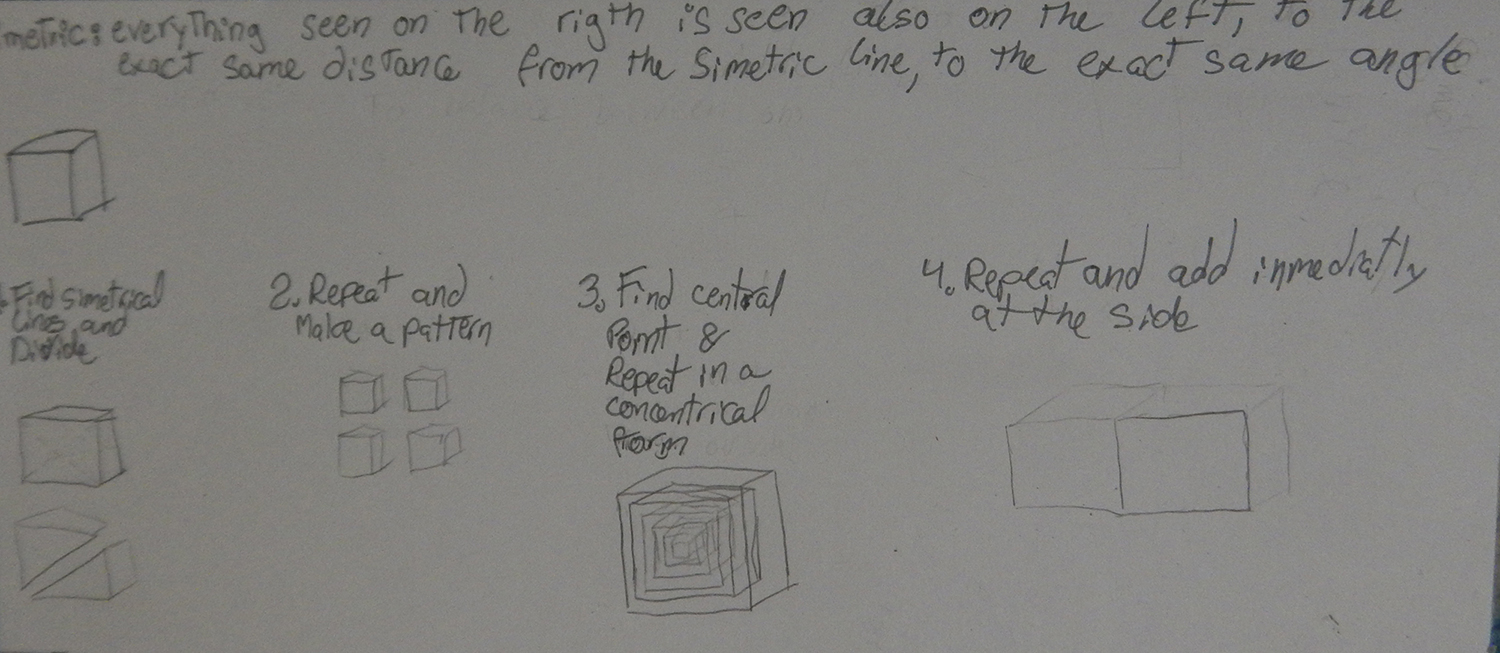 metric: everything seen on the rigth is seen also on the left, to the
exact same distance from the simetric line, to the exact same angle
Find simetrical
lines and
Divide
2. Repeat and
Make a pattern
3. Find central
Point &
Repeat in a
concentrical
form
4. Repeat and add inmediatly
at the side